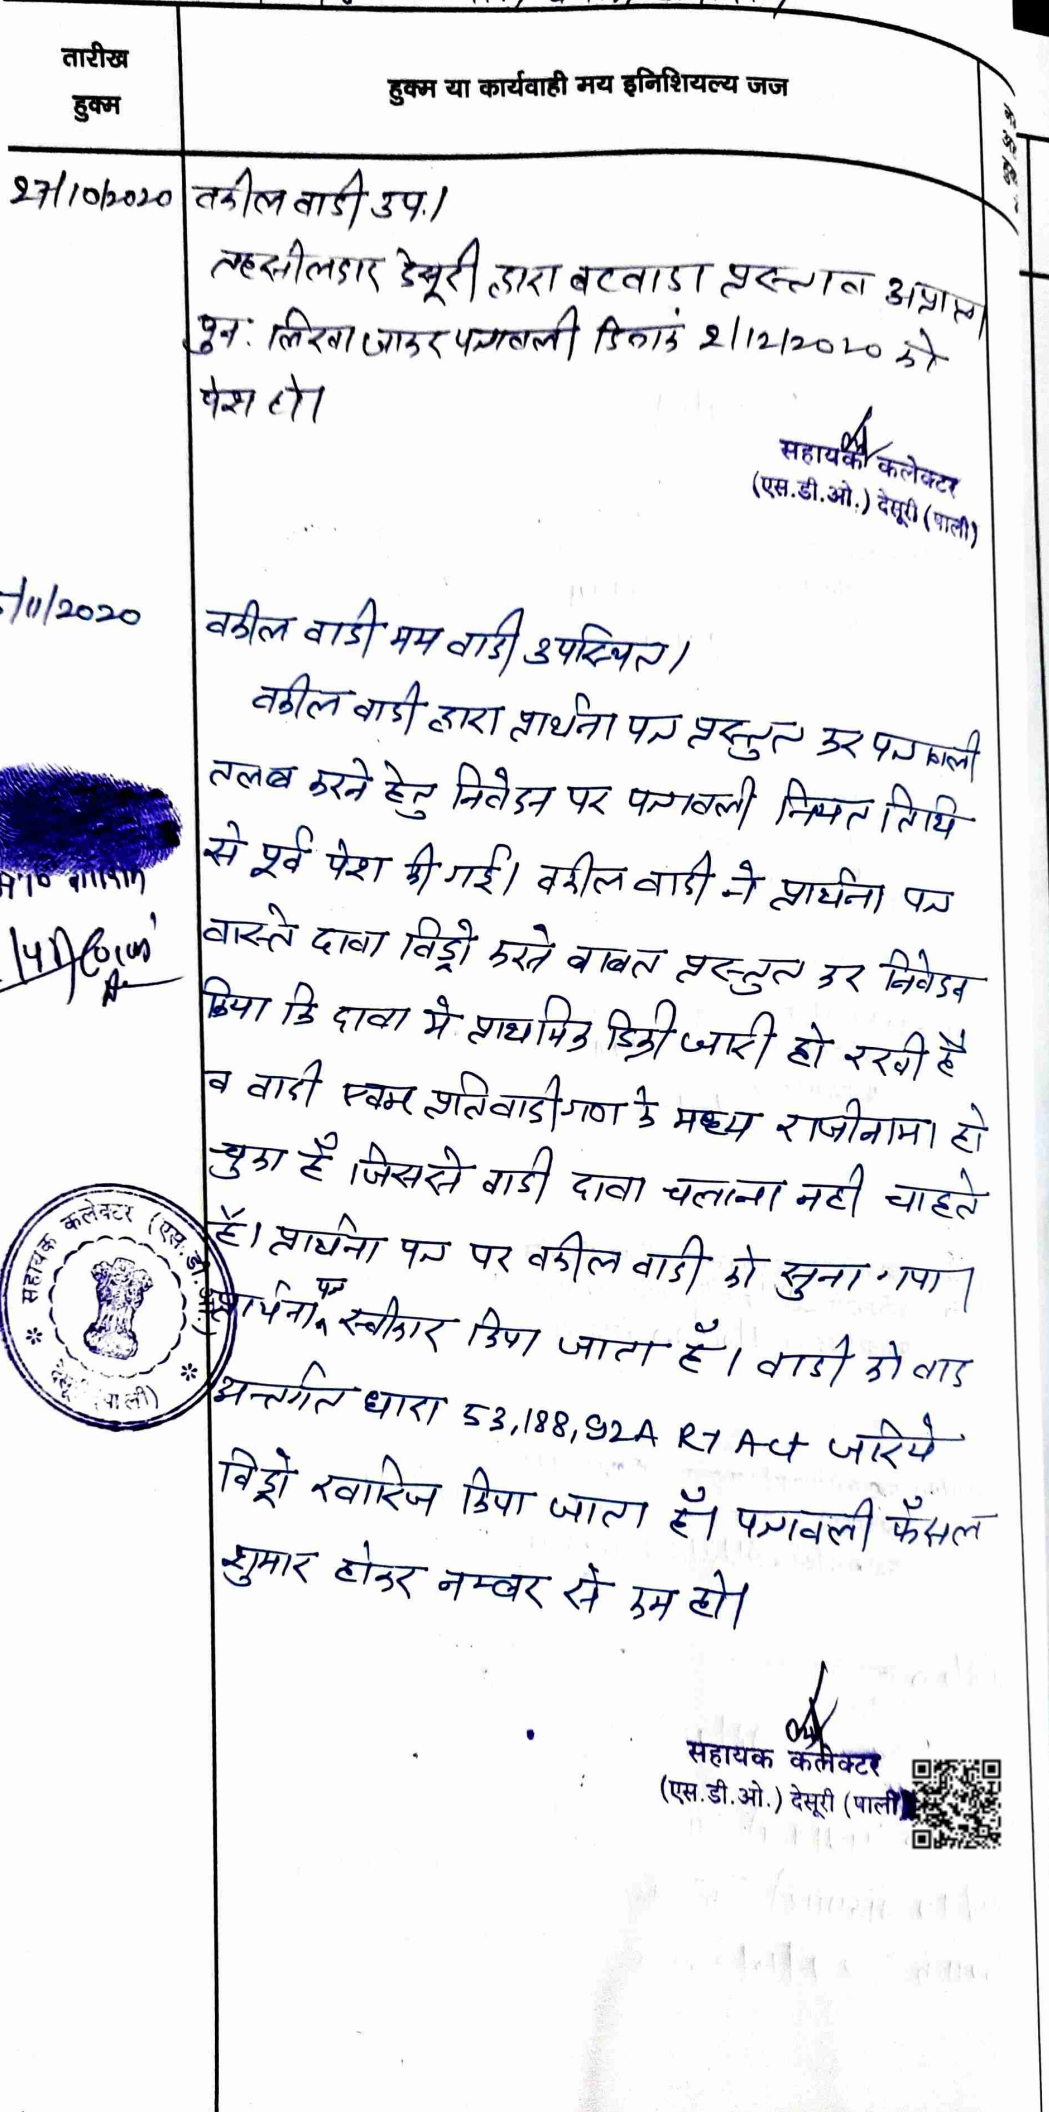 तारीख
हुक्म
हुक्म या कार्यवाही मय इनिशियल्य जज
27/10/2020 वकील वादी उप.।
तहसीलदार देसूरी द्वारा बटवाडा प्रस्ताव अप्राप्त।
पुनः लिखा जाकर पत्रावली दिनांक 2/12/2020 को
पेश हो।
सहायक कलेक्टर
(एस.डी.ओ.) देसूरी (पाली)
/11/2020 वकील वादी मय वादी उपस्थित।
वकील वादी द्वारा प्रार्थना पत्र प्रस्तुत कर पत्रावली
तलब करने हेतु निवेदन पर पत्रावली नियत तिथि
से पूर्व पेश की गई। वकील वादी ने प्रार्थना पत्र
वास्ते दावा विड्रो करने बाबत प्रस्तुत कर निवेदन
किया कि दावा मे प्राथमिक डिक्री जारी हो रखी है
व वादी एवम प्रतिवादीगण के मध्य राजीनामा हो
चुका है जिससे वादी दावा चलाना नही चाहते
है। प्रार्थना पत्र पर वकील वादी को सुना गया।
प्रार्थना पत्र स्वीकार किया जाता है। वादी को वाद
अन्तर्गत धारा 53,188,92A RT Act जरिये
विड्रो खारिज किया जाता है। पत्रावली फैसल
शुमार होकर नम्बर से कम हो।
सहायक कलेक्टर (एस.डी.ओ.)
देसूरी (पाली)
सहायक कलेक्टर
(एस.डी.ओ.) देसूरी (पाली)